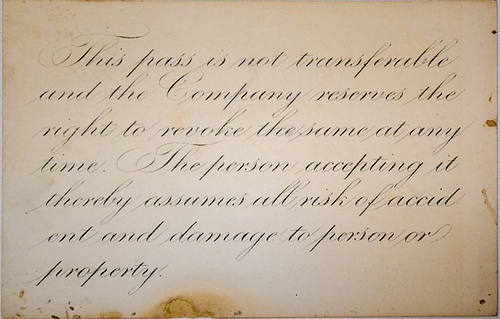 This pass is not transferable
and the Company reserves the
right to revoke the same at any
time. The person accepting it
thereby assumes all risk of accid
ent and damage to person or
property.